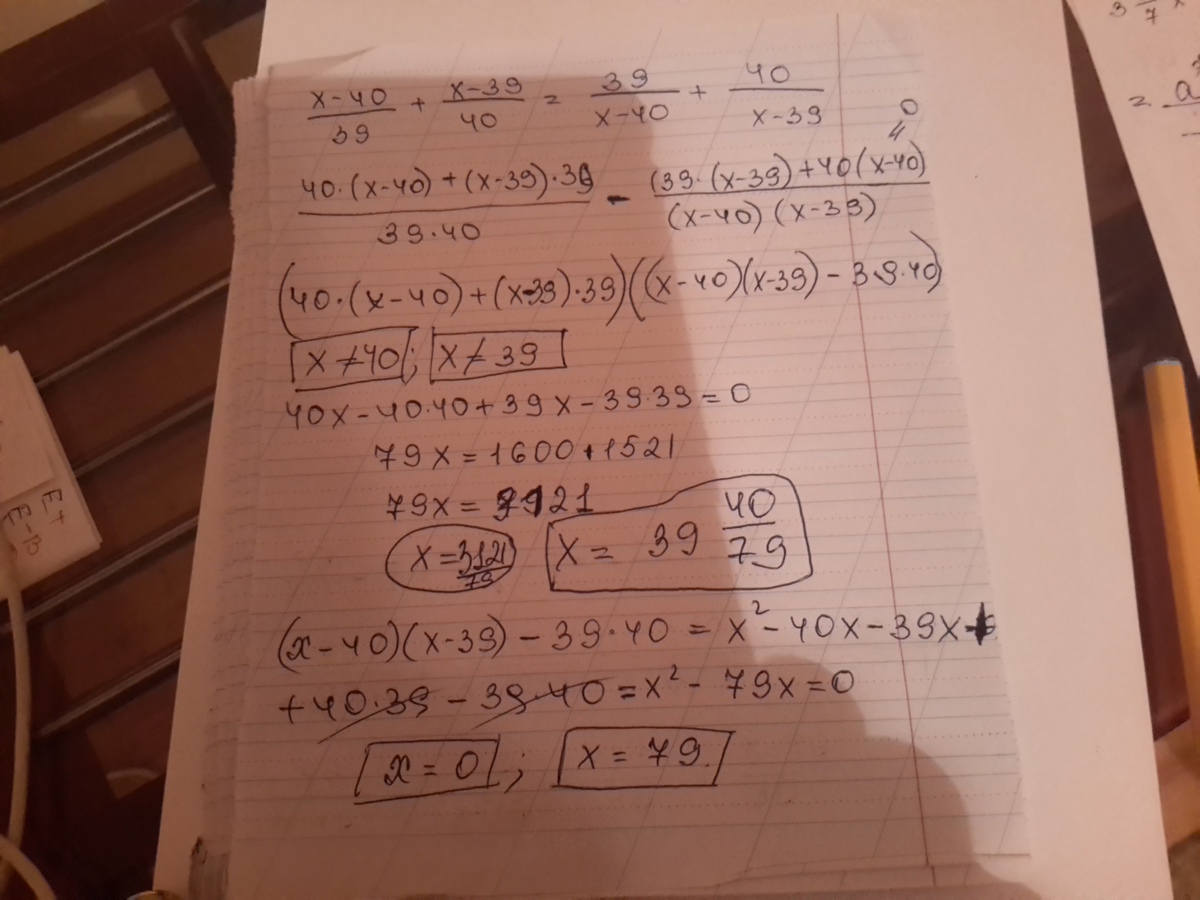 (x-40)/39 + (x-39)/40 = 39/(x-40) + 40/(x-39)
(40·(x-40)+(x-39)·39)/(39·40) - ((39·(x-39)+40(x-40))/((x-40)(x-39)) = 0
(40·(x-40)+(x-39)·39)((x-40)(x-39)-39·40)
x≠40; x≠39
40x-40·40+39x-39·39=0
79x=1600+1521
79x=3121
x=3121/79 x=39 40/79
(x-40)(x-39)-39·40=x²-40x-39x+
+40·39-39·40=x²-79x=0
x=0; x=79.
3 /7 x
= a
E+
E-B